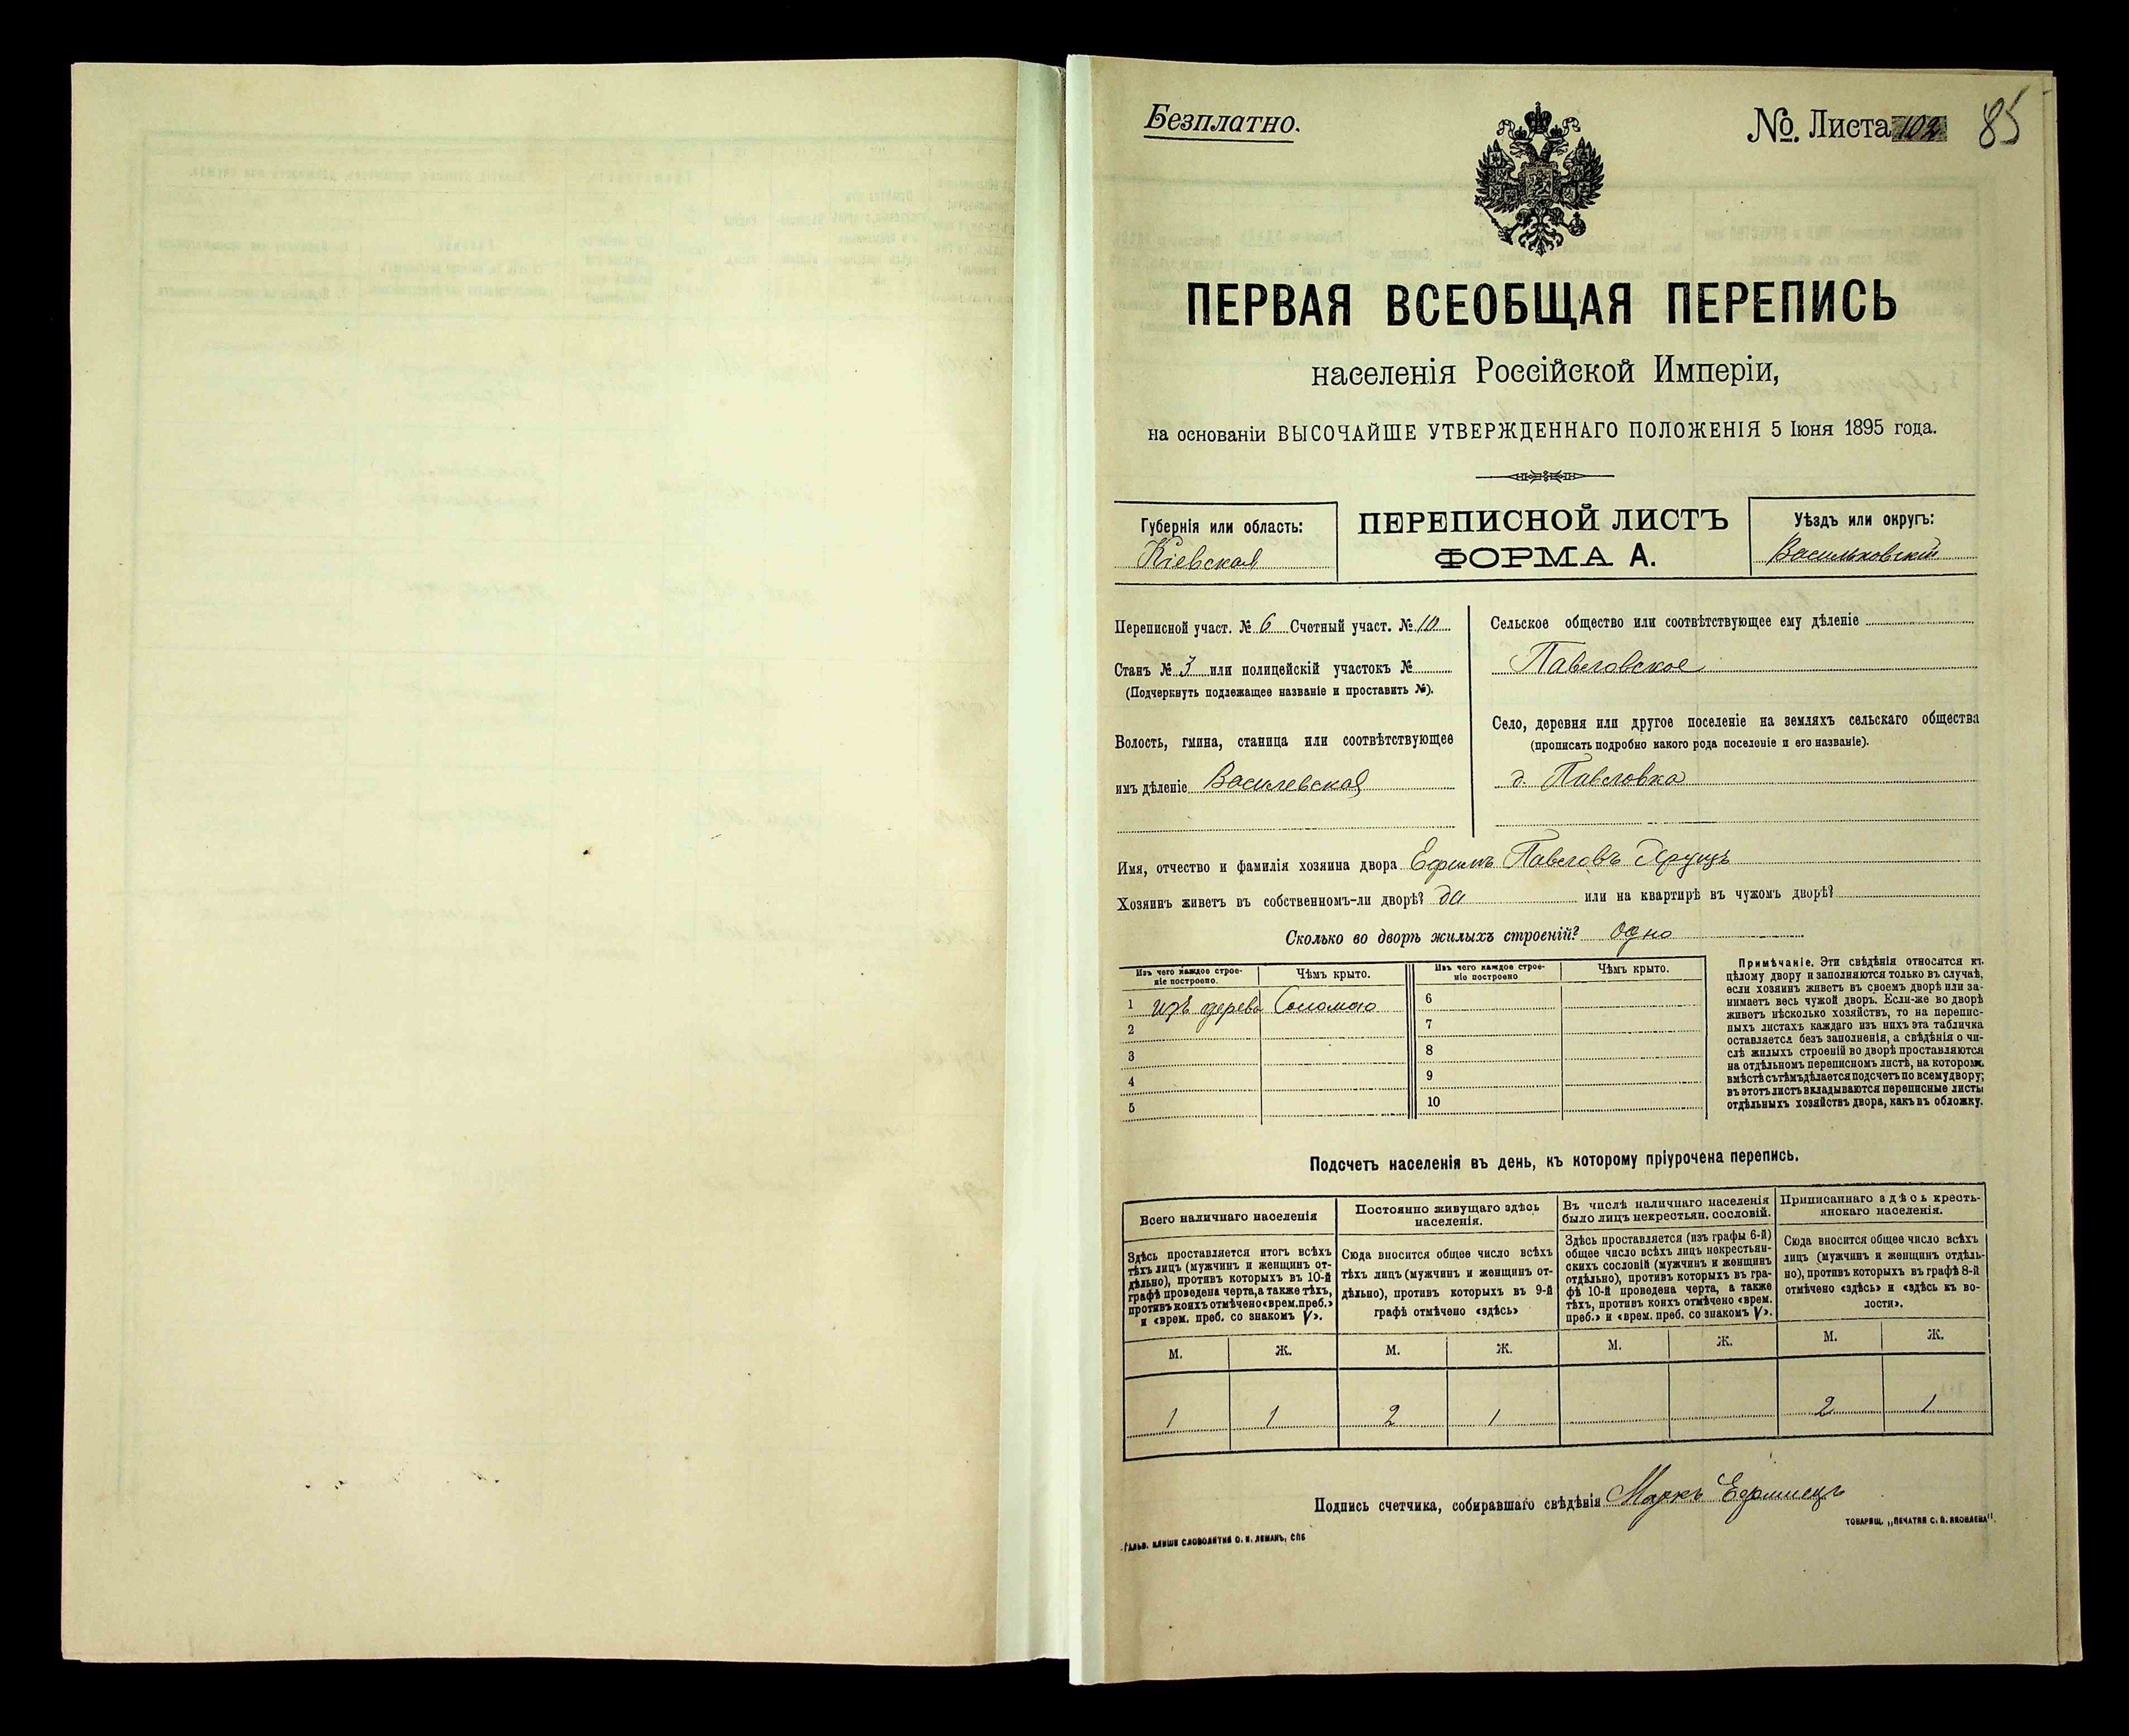 Безплатно.
№ Листа 102 85
ПЕРВАЯ ВСЕОБЩАЯ ПЕРЕПИСЬ
населенія Россійской Имперіи,
на основаніи ВЫСОЧАЙШЕ УТВЕРЖДЕННАГО ПОЛОЖЕНІЯ 5 Іюня 1895 года.
Губернія или область:
Кіевская
ПЕРЕПИСНОЙ ЛИСТЪ
ФОРМА А.
Уѣздъ или округъ:
Васильковскій
Переписной участ. № 6 Счетный участ. № 10
Станъ № 3 или полицейскій участокъ №
(Подчеркнуть подлежащее названіе и проставить №).
Волость, гмина, станица или соотвѣтствующее
имъ дѣленіе Василевская
Сельское общество или соотвѣтствующее ему дѣленіе
Павловское
Село, деревня или другое поселеніе на земляхъ сельскаго общества
(прописать подробно какого рода поселеніе и его названіе).
д. Павловка
Имя, отчество и фамилія хозяина двора Ефимъ Павловъ
Хозяинъ живетъ въ собственномъ-ли дворѣ? да или на квартирѣ въ чужомъ дворѣ?
Сколько во дворѣ жилыхъ строеній? одно
Изъ чего каждое строе-
ніе построено.
Чѣмъ крыто.
Изъ чего каждое строе-
ніе построено
Чѣмъ крыто.
1 изъ дерева Соломою 6
2 7
3 8
4 9
5 10
Примѣчаніе. Эти свѣдѣнія относятся къ
цѣлому двору и заполняются только въ случаѣ,
если хозяинъ живетъ въ своемъ дворѣ или за-
нимаетъ весь чужой дворъ. Если-же во дворѣ
живетъ нѣсколько хозяйствъ, то на перепис-
ныхъ листахъ каждаго изъ нихъ эта табличка
оставляется безъ заполненія, а свѣдѣнія о чи-
слѣ жилыхъ строеній во дворѣ проставляются
на отдѣльномъ переписномъ листѣ, на которомъ
вмѣстѣ съ тѣмъ дѣлается подсчетъ по всему двору;
въ этотъ листъ вкладываются переписные листы
отдѣльныхъ хозяйствъ двора, какъ въ обложку.
Подсчетъ населенія въ день, къ которому пріурочена перепись.
Всего наличнаго населенія
Здѣсь проставляется итогъ всѣхъ
тѣхъ лицъ (мужчинъ и женщинъ от-
дѣльно), противъ которыхъ въ 10-й
графѣ проведена черта, а также тѣхъ,
противъ коихъ отмѣчено «врем. преб.»
и «врем. преб. со знакомъ V».
Постоянно живущаго здѣсь
населенія.
Сюда вносится общее число всѣхъ
тѣхъ лицъ (мужчинъ и женщинъ от-
дѣльно), противъ которыхъ въ 9-й
графѣ отмѣчено «здѣсь»
Въ числѣ наличнаго населенія
было лицъ некрестьян. сословій.
Здѣсь проставляется (изъ графы 6-й)
общее число всѣхъ лицъ некрестьян-
скихъ сословій (мужчинъ и женщинъ
отдѣльно), противъ которыхъ въ гра-
фѣ 10-й проведена черта, а также
тѣхъ, противъ коихъ отмѣчено «врем.
преб.» и «врем. преб. со знакомъ V».
Приписаннаго здѣсь кресть-
янскаго населенія.
Сюда вносится общее число всѣхъ
лицъ (мужчинъ и женщинъ отдѣль-
но), противъ которыхъ въ графѣ 8-й
отмѣчено «здѣсь» и «здѣсь къ во-
лости».
М. Ж. М. Ж. М. Ж. М. Ж.
1 1 2 1 2 1
Подпись счетчика, собиравшаго свѣдѣнія Маркъ Ефимецъ
Гальв. клише словолитни О. И. Леманъ, СПБ
ТОВАРИЩ. „ПЕЧАТНЯ С. П. ЯКОВЛЕВА".